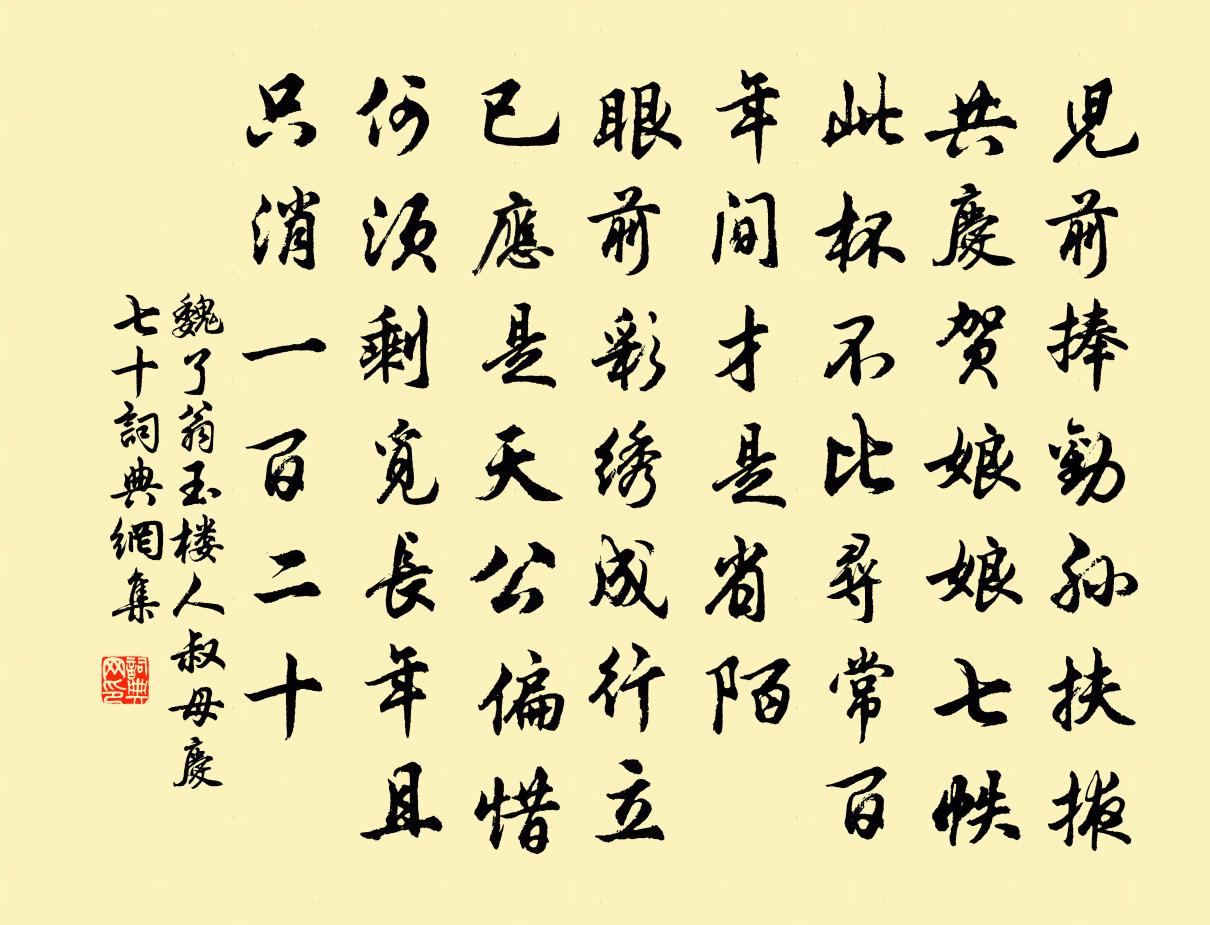 児前捧勸孙扶掖
共慶贺娘娘七帙
此杯不比尋常百
年间才是省陌
眼前彩绣成行立
已應是天公偏惜
何须剩覓長年且
只消一百二十
魏了翁玉楼人叔母慶
七十詞典網集
詞典
网印